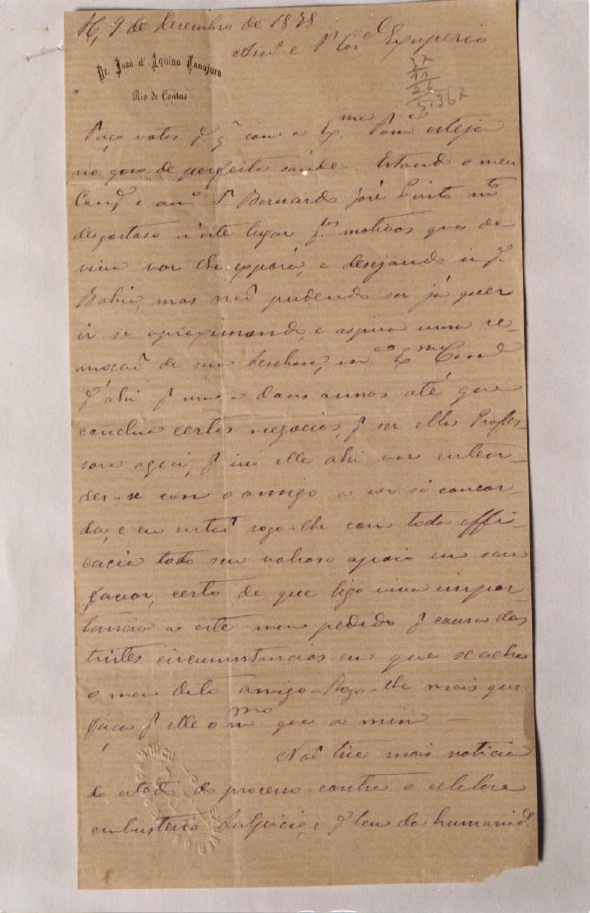 9 de Dezembro de 1878
Amº e Sr Cor.el Exuperio
Dr. José d'Aquino Tanajura
Rio de Contas
Faço votos pª q' com a Exma Famª esteja
no goso de perfeita saude. Estando o meu
e amº Sr Bernardo José Pinto mto
desgostoso n'este lugar motivos que de
viva voz lhe exporá, e desejando ir pª
Bahia, mas não podendo ser já quer
ir se aproximando, e aspira uma re-
moção de sua Senhora, Exma
pª ahi pr um a dous annos até que
conclua certos negocios, pr ser ella Profes-
sora aqui, pr isso elle ahi vae enten-
der-se com o amigo a ver si concor-
da, e eu então rogo-lhe com toda effi-
cacia todo seu valioso apoio em seu
favor, certo de que ligo viva impor-
tancia a este meu pedido pr causa das
tristes circumstancias em que se acha
o meu dito amigo. Rogo-lhe mais que
faça pr elle o mmo que a mim
Não tive mais noticia
do estado do processo contra o celebre
embusteiro e pr bem da humanide